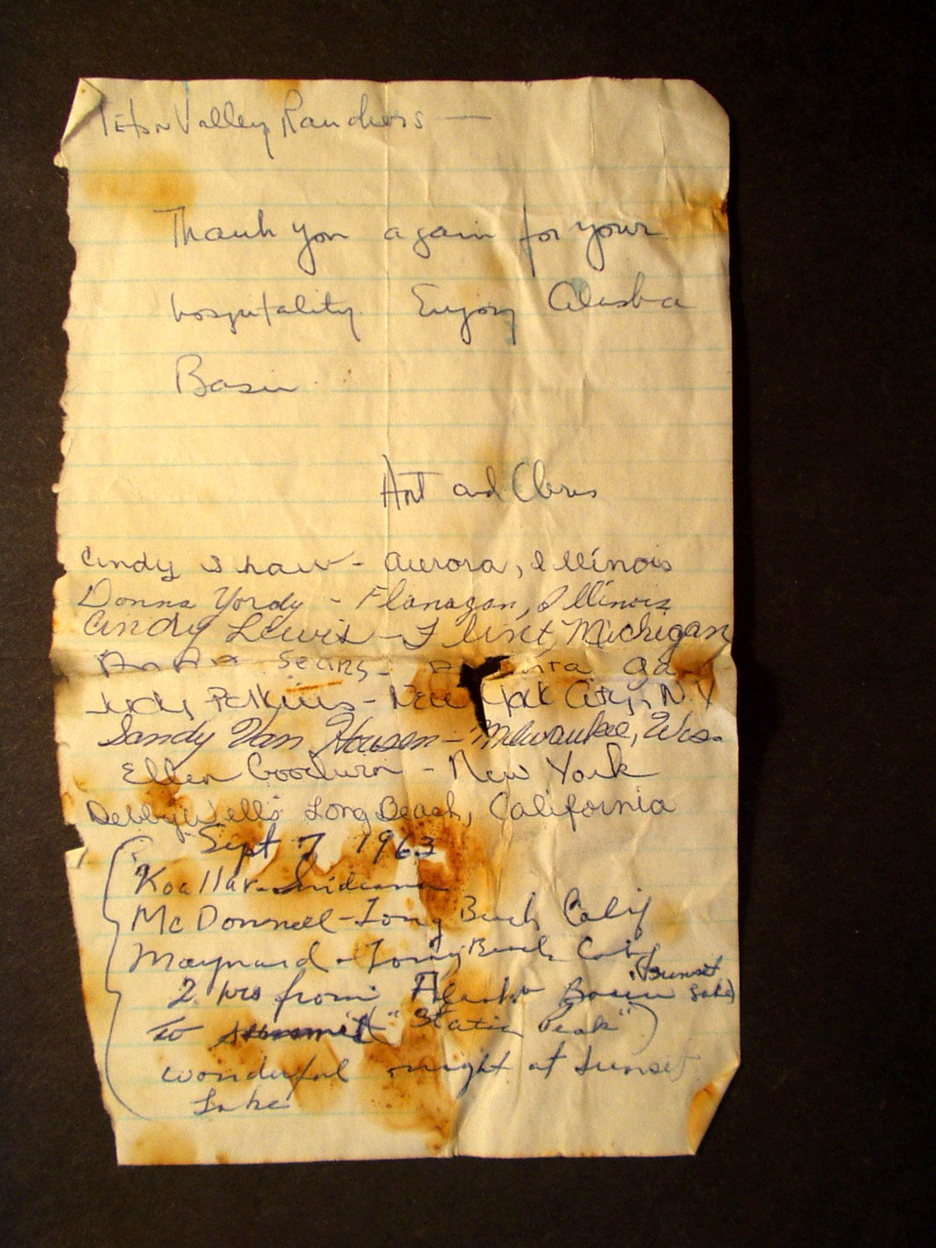 Teton Valley Ranchers —
Thank you again for your
hospitality. Enjoy Alaska
Basin
Art and
Cindy Shaw - Aurora, Illinois
Donna Yordy - Flanagan, Illinois
Cindy Lewis - Flint Michigan
Sears - Ga
Judy Perkins - New York City, N.Y
Sandy Van Housen - Milwaukee, Wis.
Ellen Goodwin - New York
Debby Wells Long Beach, California
Sept 7 1963
Indiana
McDonnell - Long Beach Calif
Maynard - Long Beach Calif
2 hrs from Alaska Basin (Sunset Lake)
To "Static Peak")
wonderful night at Sunset
Lake